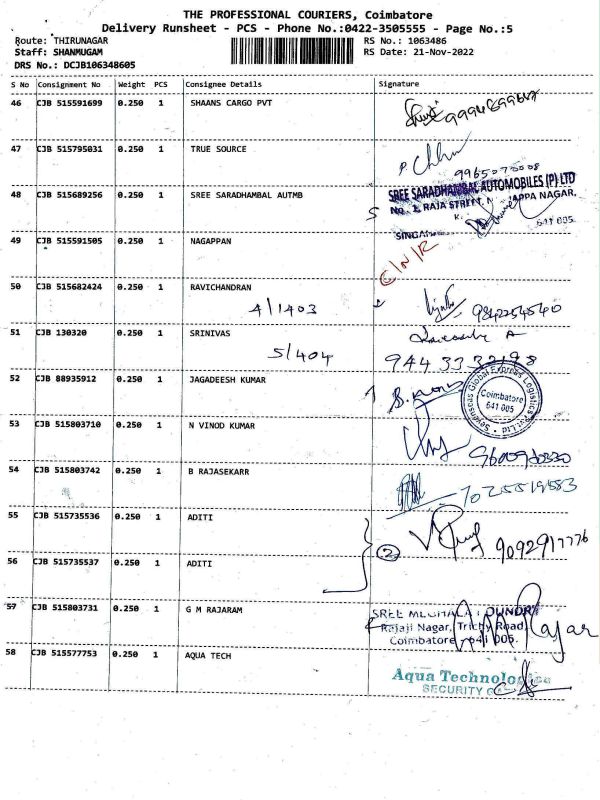 THE PROFESSIONAL COURIERS, Coimbatore
Delivery Runsheet - PCS - Phone No.:0422-3505555 - Page No.:5
Route: THIRUNAGAR RS No.: 1063486
Staff: SHANMUGAM RS Date: 21-Nov-2022
DRS No.: DCJB106348605
S No Consignment No Weight PCS Consignee Details Signature
46 CJB 515591699 0.250 1 SHAANS CARGO PVT
47 CJB 515795031 0.250 1 TRUE SOURCE
9965070008
48 CJB 515689256 0.250 1 SREE SARADHAMBAL AUTMB
SREE SARADHAMBAL AUTOMOBILES (P) LTD
No. 2, RAJA STREET, APPA NAGAR,
K.
SINGAN
641 005
49 CJB 515591505 0.250 1 NAGAPPAN
C/N/R
50 CJB 515682424 0.250 1 RAVICHANDRAN
4/1403 9842254540
51 CJB 130320 0.250 1 SRINIVAS
5/404 944 3332198
52 CJB 88935912 0.250 1 JAGADEESH KUMAR
Sevenseas Global Express Logistics Pvt. Ltd
Coimbatore
641 005
53 CJB 515803710 0.250 1 N VINOD KUMAR
54 CJB 515803742 0.250 1 B RAJASEKARR
55 CJB 515735536 0.250 1 ADITI
2
56 CJB 515735537 0.250 1 ADITI
57 CJB 515803731 0.250 1 G M RAJARAM
SREE FOUNDRY
Rajaji Nagar, Trichy Road,
Coimbatore - 641 005.
58 CJB 515577753 0.250 1 AQUA TECH
Aqua Technologies
SECURITY